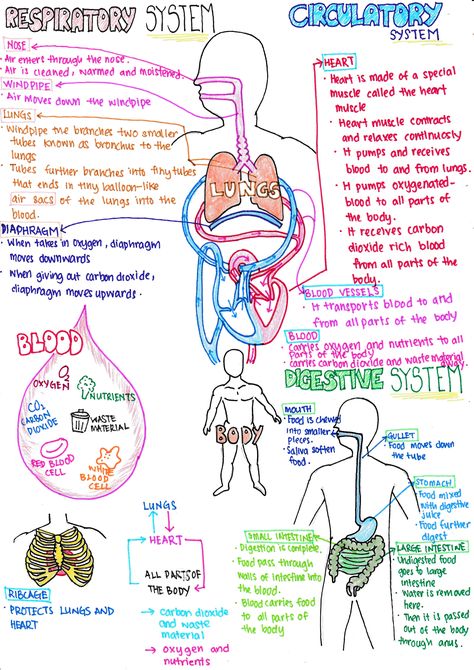 RESPIRATORY SYSTEM
NOSE
Air enters through the nose.
Air is cleaned, warmed and moistened.
WINDPIPE
Air moves down the windpipe
LUNGS
Windpipe the branches two smaller
tubes known as bronchus to the
lungs
Tubes further branches into tiny tubes
that ends in tiny balloon-like
air sacs of the lungs into the
blood.
DIAPHRAGM
When takes in oxygen, diaphragm
moves downwards
When giving out carbon dioxide,
diaphragm moves upwards.
LUNGS
CIRCULATORY
SYSTEM
HEART
Heart is made of a special
muscle called the heart
muscle
Heart muscle contracts
and relaxes continuosly
It pumps and receives
blood to and from lungs.
It pumps oxygenated-
blood to all parts of
the body.
It receives carbon
dioxide rich blood
from all parts of the
body.
BLOOD VESSELS
It transports blood to and
from all parts of the body
BLOOD
carries oxygen and nutrients to all
parts of the body
carries carbon dioxide and waste material
away.
BLOOD
OXYGEN
NUTRIENTS
CO2
CARBON
DIOXIDE
WASTE
MATERIAL
RED BLOOD
CELL
WHITE
BLOOD
CELL
BODY
DIGESTIVE SYSTEM
MOUTH
Food is chewed
into smaller
pieces.
Saliva soften
food.
GULLET
Food moves down
the tube
STOMACH
Food mixed
with digestive
juice
Food further
digest
SMALL INTESTINE
Digestion is complete.
Food pass through
walls of intestine into
the blood.
Blood carries food
to all parts of
the body
LARGE INTESTINE
Undigested food
goes to large
intestine
Water is removed
here.
Then it is passed
out of the body
through anus.
RIBCAGE
PROTECTS LUNGS AND
HEART
LUNGS
HEART
ALL PARTS OF
THE BODY
→ carbon dioxide
and waste
material
→ oxygen and
nutrients